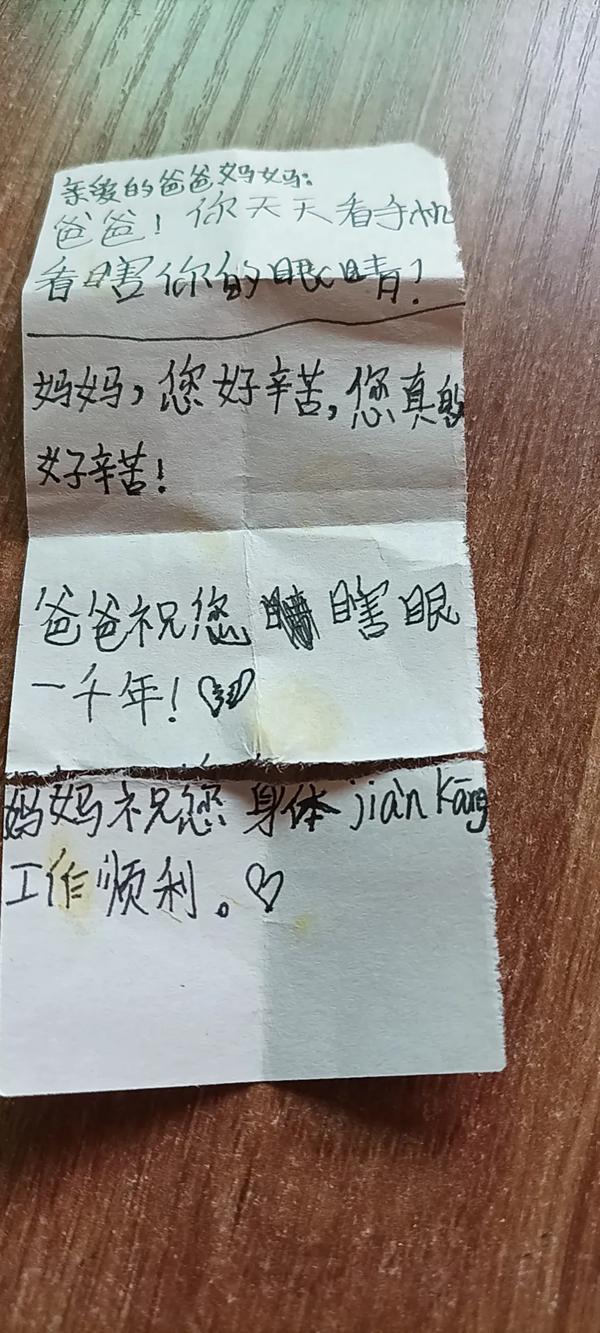 亲爱的爸爸妈妈:
爸爸!你天天看手机
看瞎你的眼睛!
妈妈,您好辛苦,您真的
好辛苦!
爸爸祝您 瞎眼
一千年!
妈妈祝您身体jiàn kāng
工作顺利。